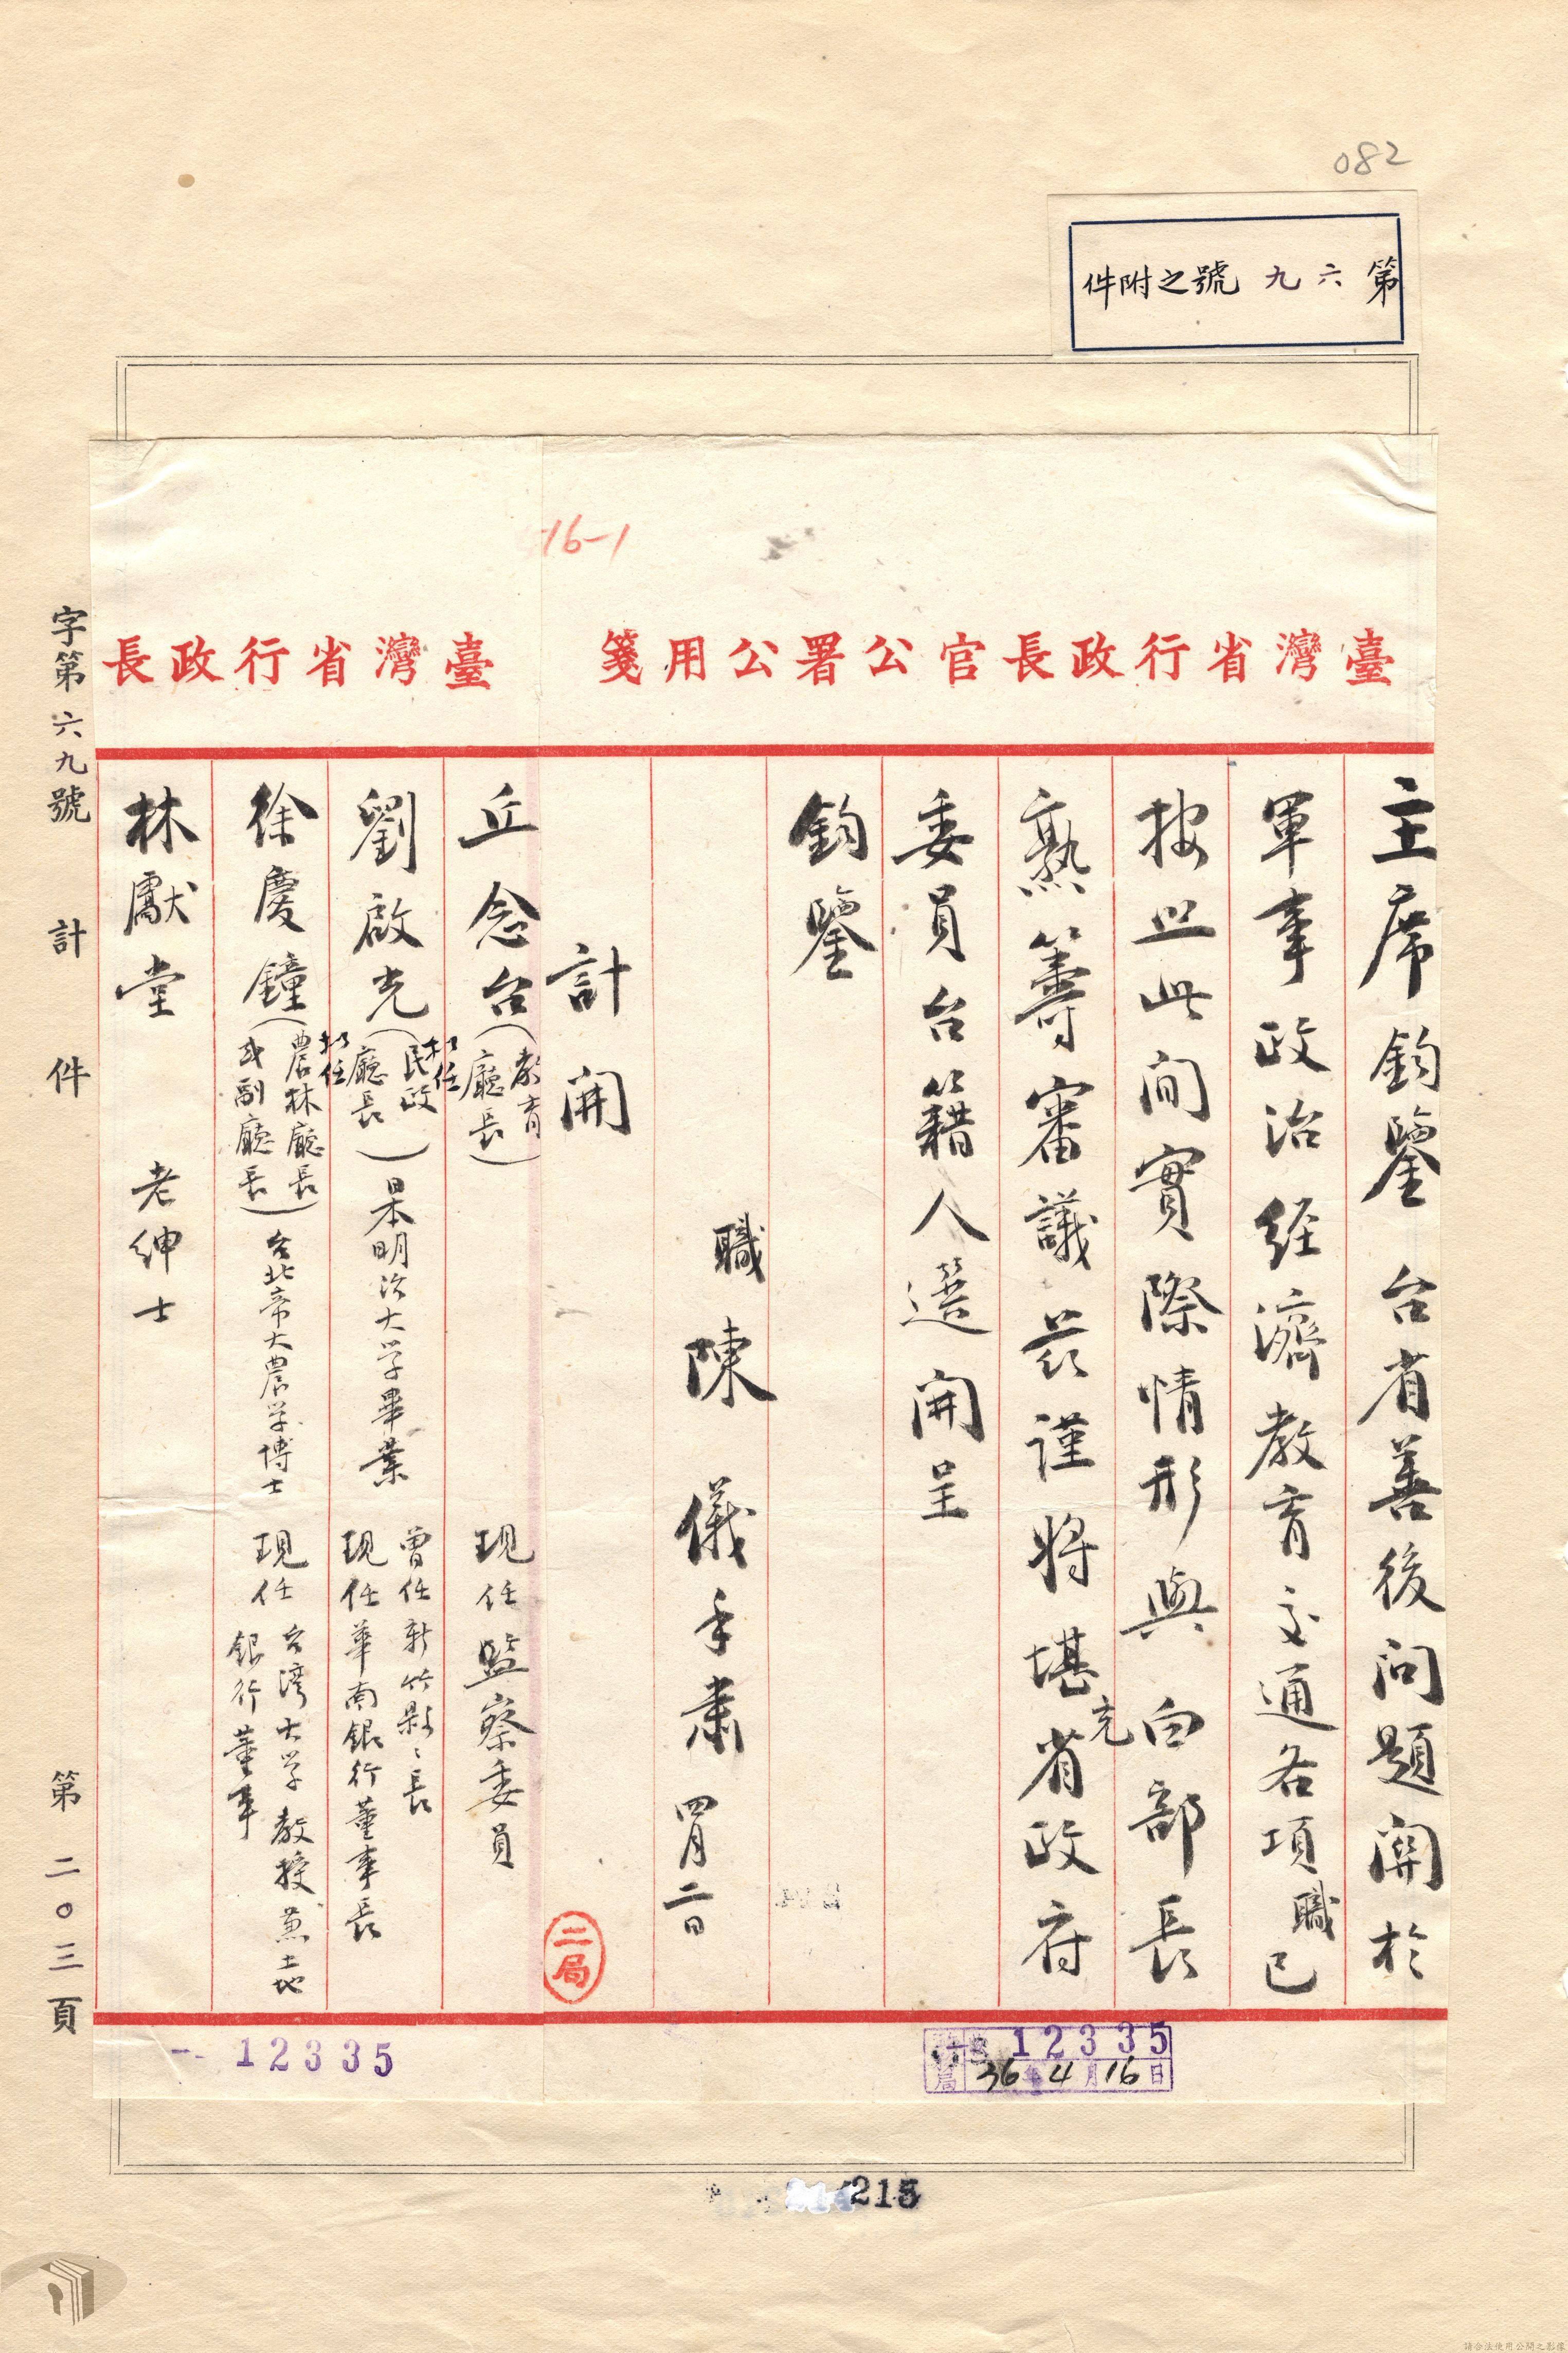 082
第六九號之附件
16-1
臺灣省行政長官公署公用箋
主席鈞鑒 台省善後問題關於
軍事政治經濟教育交通各項職已
按照此間實際情形與 白部長
熟籌審議茲謹將堪充省政府
委員台籍人選開呈
鈞鑒
職陳 儀手肅 四月二日
計開
二局
臺灣省行政長
丘念台(教育廳長) 現任監察委員
擬任
劉啟光(民政廳長)日本明治大学畢業 曾任新竹縣〻長 現任華南銀行董事長
擬任
徐慶鐘(農林廳長或副廳長)台北帝大農学博士 現任台湾大学教授兼土地銀行董事
林獻堂 老紳士
字第六九號 計 件 第二〇三頁
12335
36年4月16日
12335
215
請合法使用公開之影像